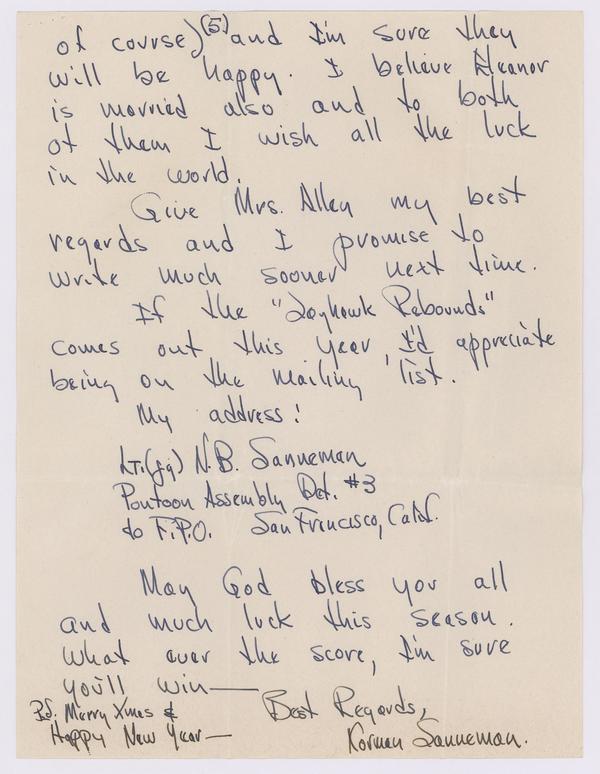 of course) (5) and I'm sure they
will be happy. I believe Eleanor
is married also and to both
of them I wish all the luck
in the world.
Give Mrs. Allen my best
regards and I promise to
write much sooner next time.
If the "Jayhawk Rebounds"
comes out this year, I'd appreciate
being on the mailing list.
My address:
Lt.(jg) N.B. Sanneman
Pontoon Assembly Det. #3
c/o F.P.O. San Francisco, Calif.
May God bless you all
and much luck this season.
What ever the score, I'm sure
you'll win—
Best Regards,
Norman Sanneman.
P.S. Merry Xmas &
Happy New Year—